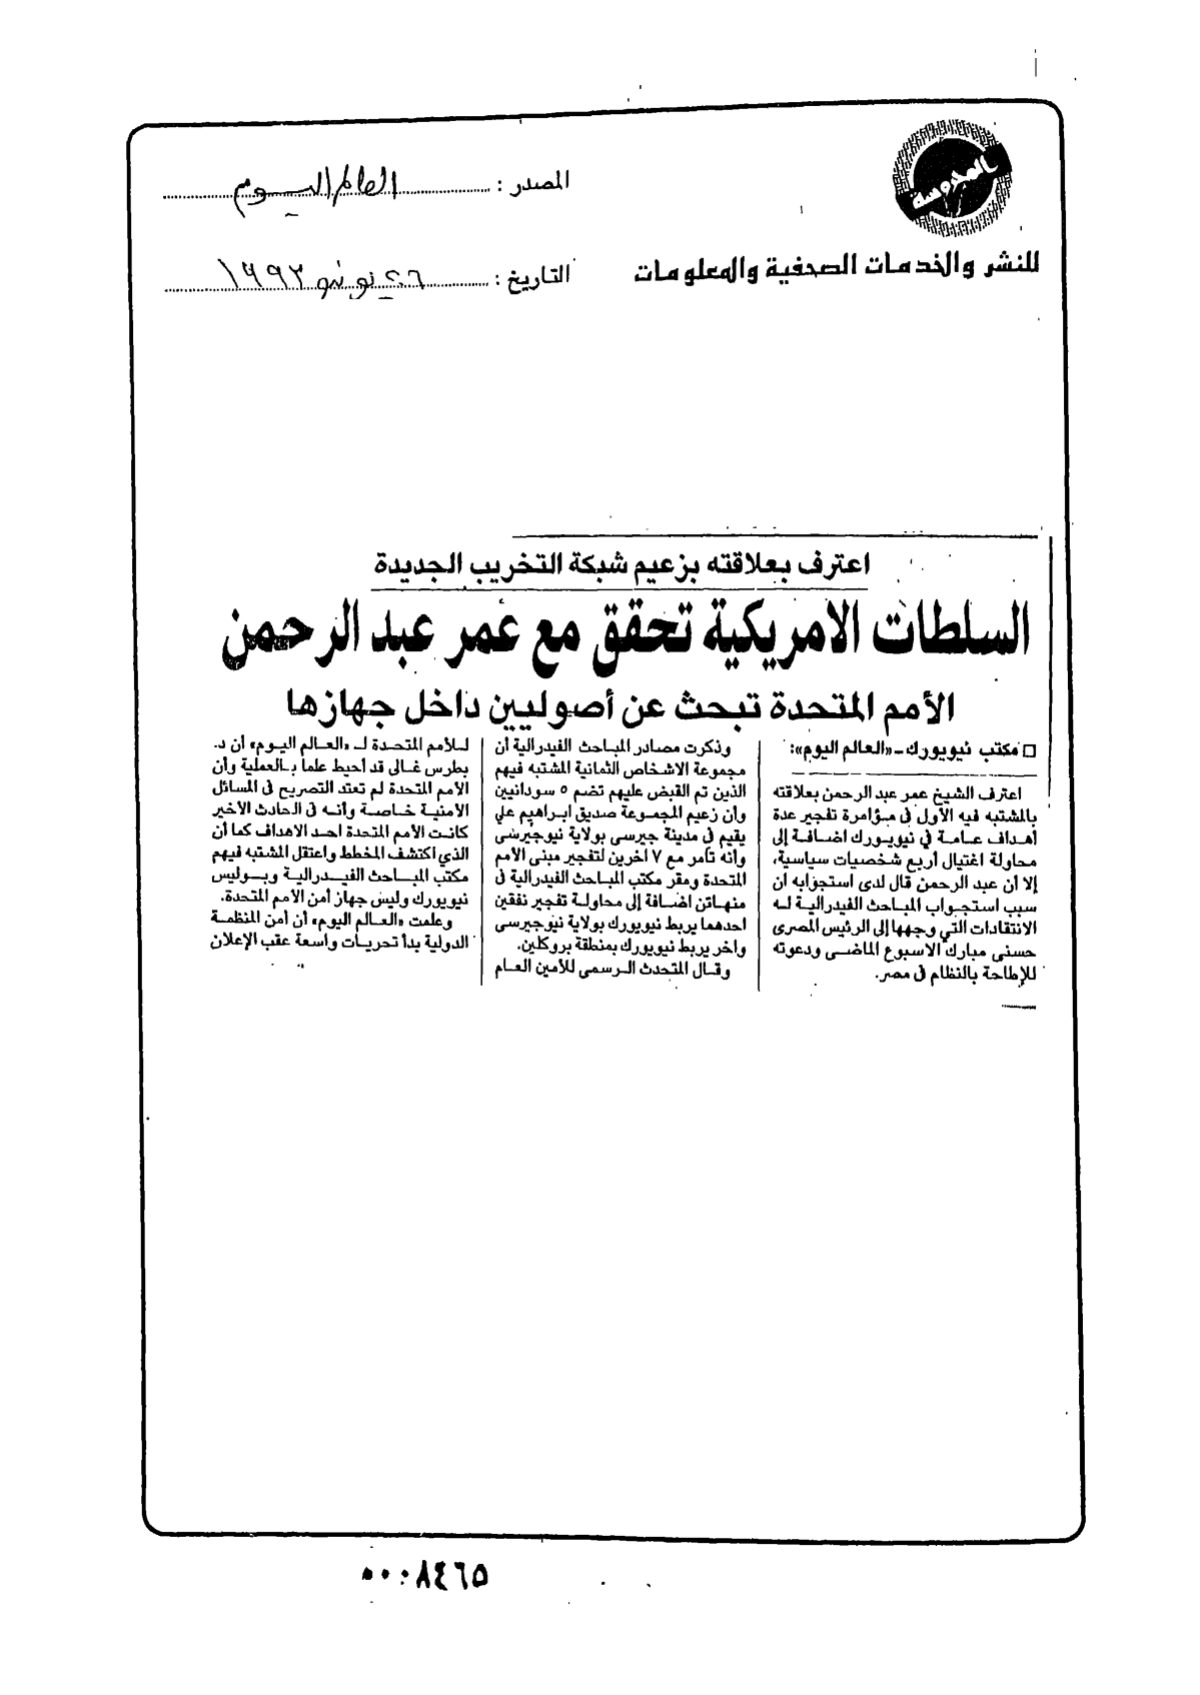 المحروسة
للنشر والخدمات الصحفية والمعلومات
المصدر : العالم اليوم
التاريخ : ٢٦ يونيو ١٩٩٣
اعترف بعلاقته بزعيم شبكة التخريب الجديدة
السلطات الامريكية تحقق مع عمر عبد الرحمن
الأمم المتحدة تبحث عن أصوليين داخل جهازها
□ مكتب نيويورك ـ «العالم اليوم»:
اعترف الشيخ عمر عبد الرحمن بعلاقته
بالمشتبه فيه الأول في مؤامرة تفجير عدة
أهداف عامة في نيويورك اضافة إلى
محاولة اغتيال أربع شخصيات سياسية،
إلا أن عبد الرحمن قال لدى استجوابه ان
سبب استجواب المباحث الفيدرالية له
الانتقادات التي وجهها إلى الرئيس المصرى
حسنى مبارك الاسبوع الماضى ودعوته
للإطاحة بالنظام في مصر.
وذكرت مصادر المباحث الفيدرالية أن
مجموعة الاشخاص الثمانية المشتبه فيهم
الذين تم القبض عليهم تضم ٥ سودانيين
وأن زعيم المجموعة صديق ابراهيم علي
يقيم في مدينة جيرسى بولاية نيوجيرسى
وأنه تآمر مع ٧ آخرين لتفجير مبنى الأمم
المتحدة ومقر مكتب المباحث الفيدرالية في
منهاتن اضافة إلى محاولة تفجير نفقين
احدهما يربط نيويورك بولاية نيوجيرسى
وآخر يربط نيويورك بمنطقة بروكلين.
وقال المتحدث الرسمى للأمين العام
للأمم المتحدة لـ «العالم اليوم» أن د.
بطرس غالى قد أحيط علما بالعملية وأن
الأمم المتحدة لم تعتد التصريح في المسائل
الامنية خاصة وأنه في الحادث الأخير
كانت الأمم المتحدة احد الاهداف كما أن
الذي اكتشف المخطط واعتقل المشتبه فيهم
مكتب المباحث الفيدرالية وبوليس
نيويورك وليس جهاز أمن الأمم المتحدة.
وعلمت «العالم اليوم» أن أمن المنظمة
الدولية بدأ تحريات واسعة عقب الإعلان
٠٠٠٨٤٦٥